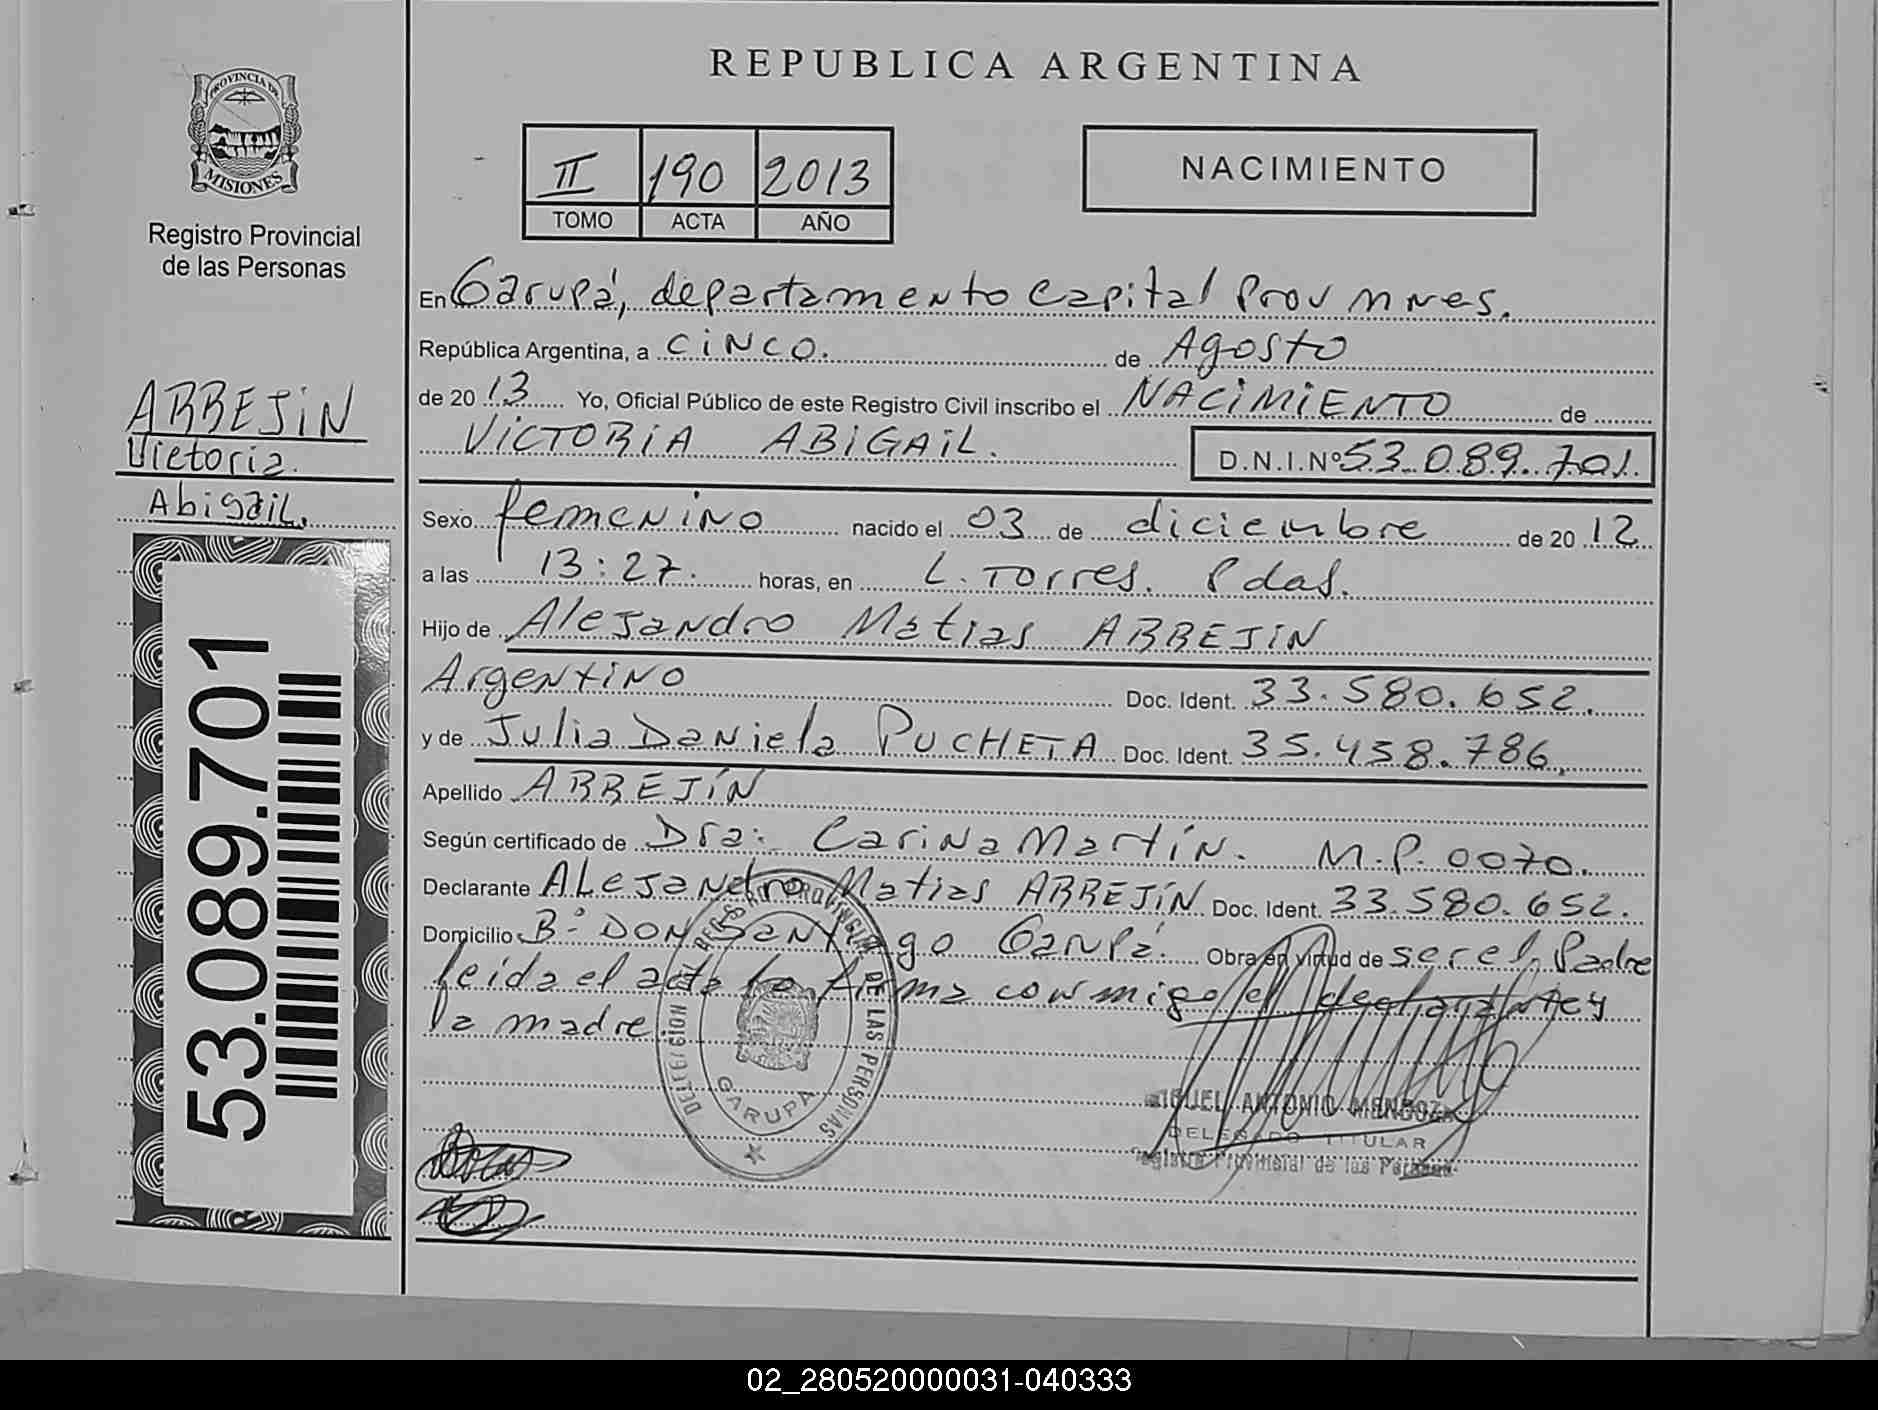 REPUBLICA ARGENTINA
PROVINCIA DE
MISIONES
Registro Provincial
de las Personas
II 190 2013
TOMO ACTA AÑO
NACIMIENTO
En Garupá, departamento Capital Prov Mnes.
República Argentina, a CINCO. de Agosto
de 2013 Yo, Oficial Público de este Registro Civil inscribo el NACIMIENTO de
VICTORIA ABIGAIL. D.N.I.Nº 53.089.701.
ARREJIN
Victoria
Abigail.
Sexo femenino nacido el 03 de diciembre de 2012
a las 13:27. horas, en L. Torres. Pdas.
Hijo de Alejandro Matias ARREJIN
Argentino Doc. Ident. 33.580.652.
y de Julia Daniela PUCHETA Doc. Ident. 35.458.786.
Apellido ARREJÍN
Según certificado de Dra: Carina Martín. M.P. 0070.
Declarante ALejandro Matias ARREJÍN Doc. Ident. 33.580.652.
Domicilio Bº DON Santiago Garupá. Obra en virtud de ser el Padre
leida el acta la firma conmigo el declarante y
la madre.
53.089.701
DELEGACION DEL REGISTRO PROVINCIAL DE LAS PERSONAS
GARUPÁ
MIGUEL ANTONIO MENDOZA
DELEGADO TITULAR
Registro Provincial de las Personas
02_280520000031-040333